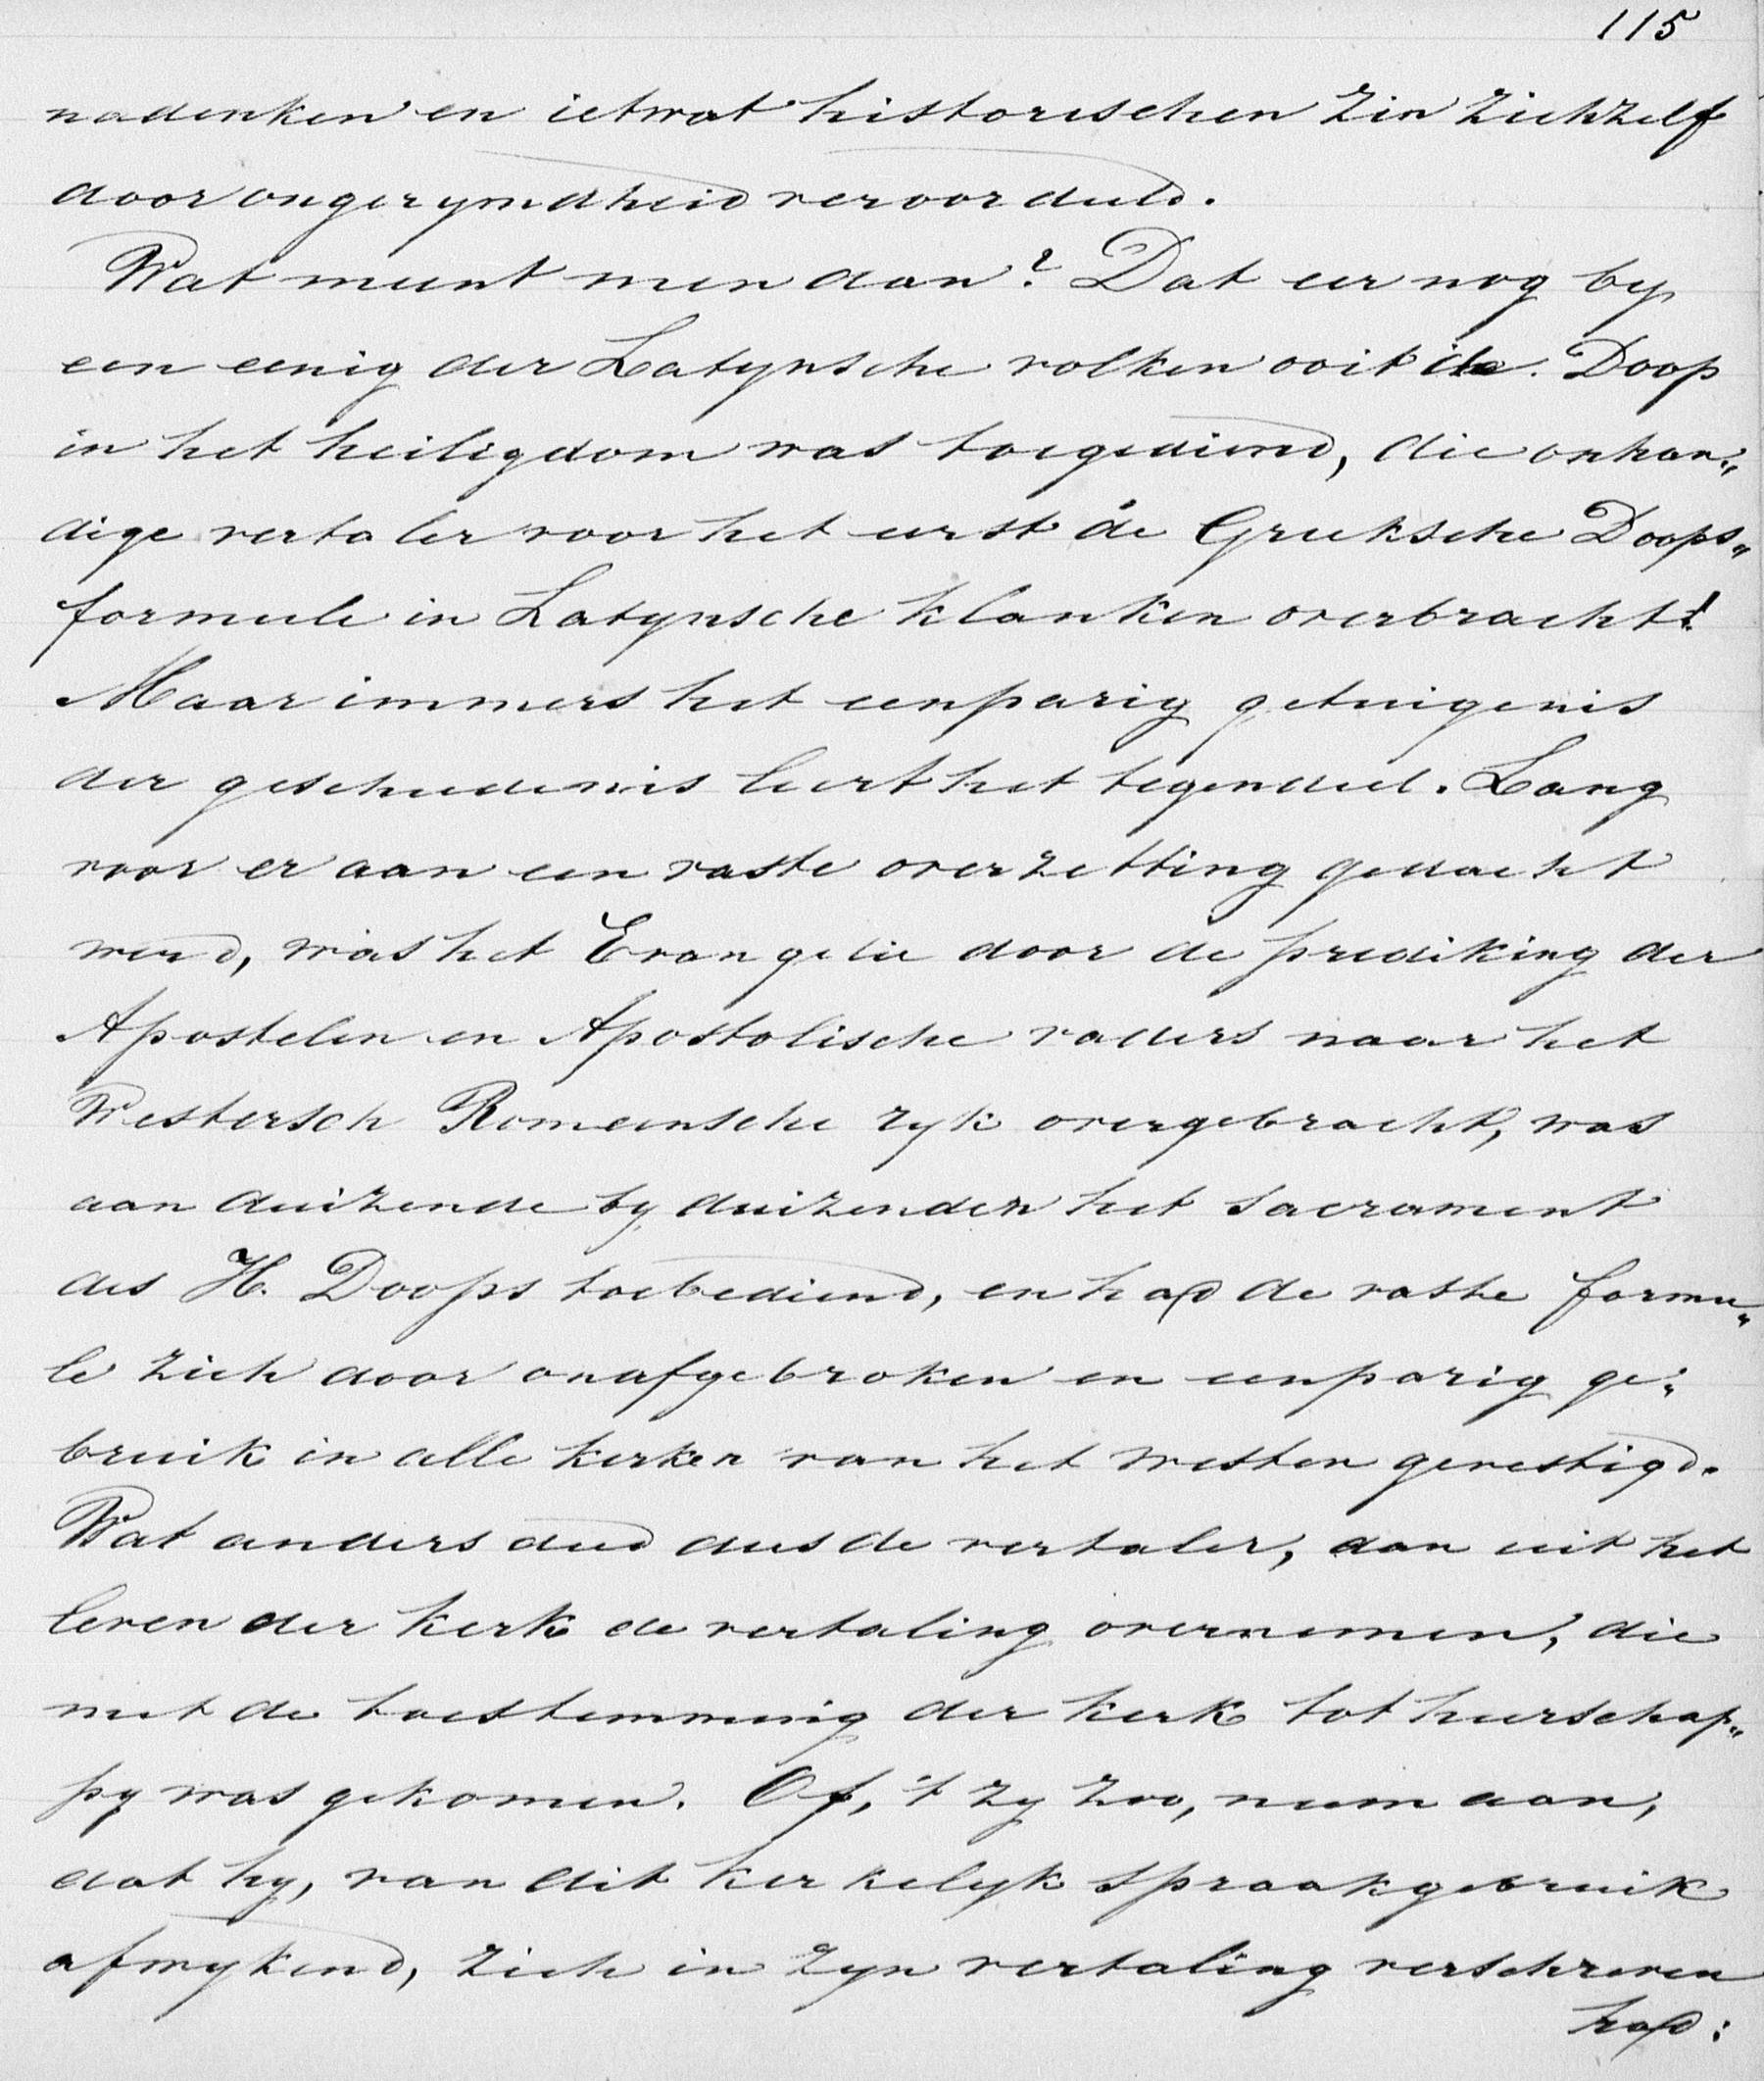 115
nadenken en ietwat historischen zin zichzelf
door ongerymdheid veroordeeld.
Wat meent men dan? Dat eer nog by
een eenig der Latynsche volken ooit de Doop
in het heiligdom was toegediend, die onhan„
dige vertaler voor het eerst de Grieksche Doops„
formule in Latynsche klanken overbracht!
Maar immers het eenparig getuigenis
der geschiedenis leert het tegendeel. Lang
voor er aan een vaste overzetting gedacht
werd, was het Evangelie door de prediking der
Apostelen en Apostolische vaders naar het
Westersch Romeinsche ryk overgebracht, was
aan duizende by duizenden het sacrament
des H. Doops toebediend, en had de vaste formu„
le zich door onafgebroken en eenparig ge„
bruik in alle kerken van het westen gevestigd.
Wat anders deed dus de vertaler, dan uit het
leven der kerk de vertaling overnemen, die
met de toestemming der kerk tot heerschap„
py was gekomen. Of, 't zy zoo, neem aan,
dat hy, van dit kerkelyk spraakgebruik
afwykend, zich in zyn vertaling verschreven
had: